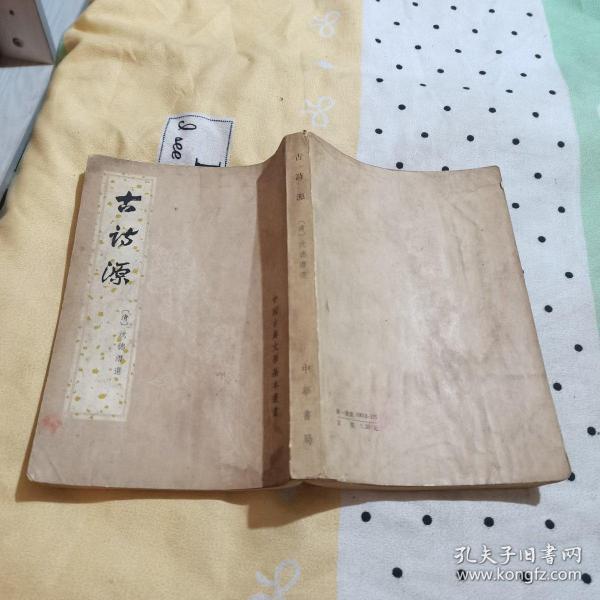 古诗源
〔清〕沈德潛選
中國古典文學基本叢書
古詩源
〔清〕沈德潛選
中華書局
I see
孔夫子旧书网
www.kongfz.com